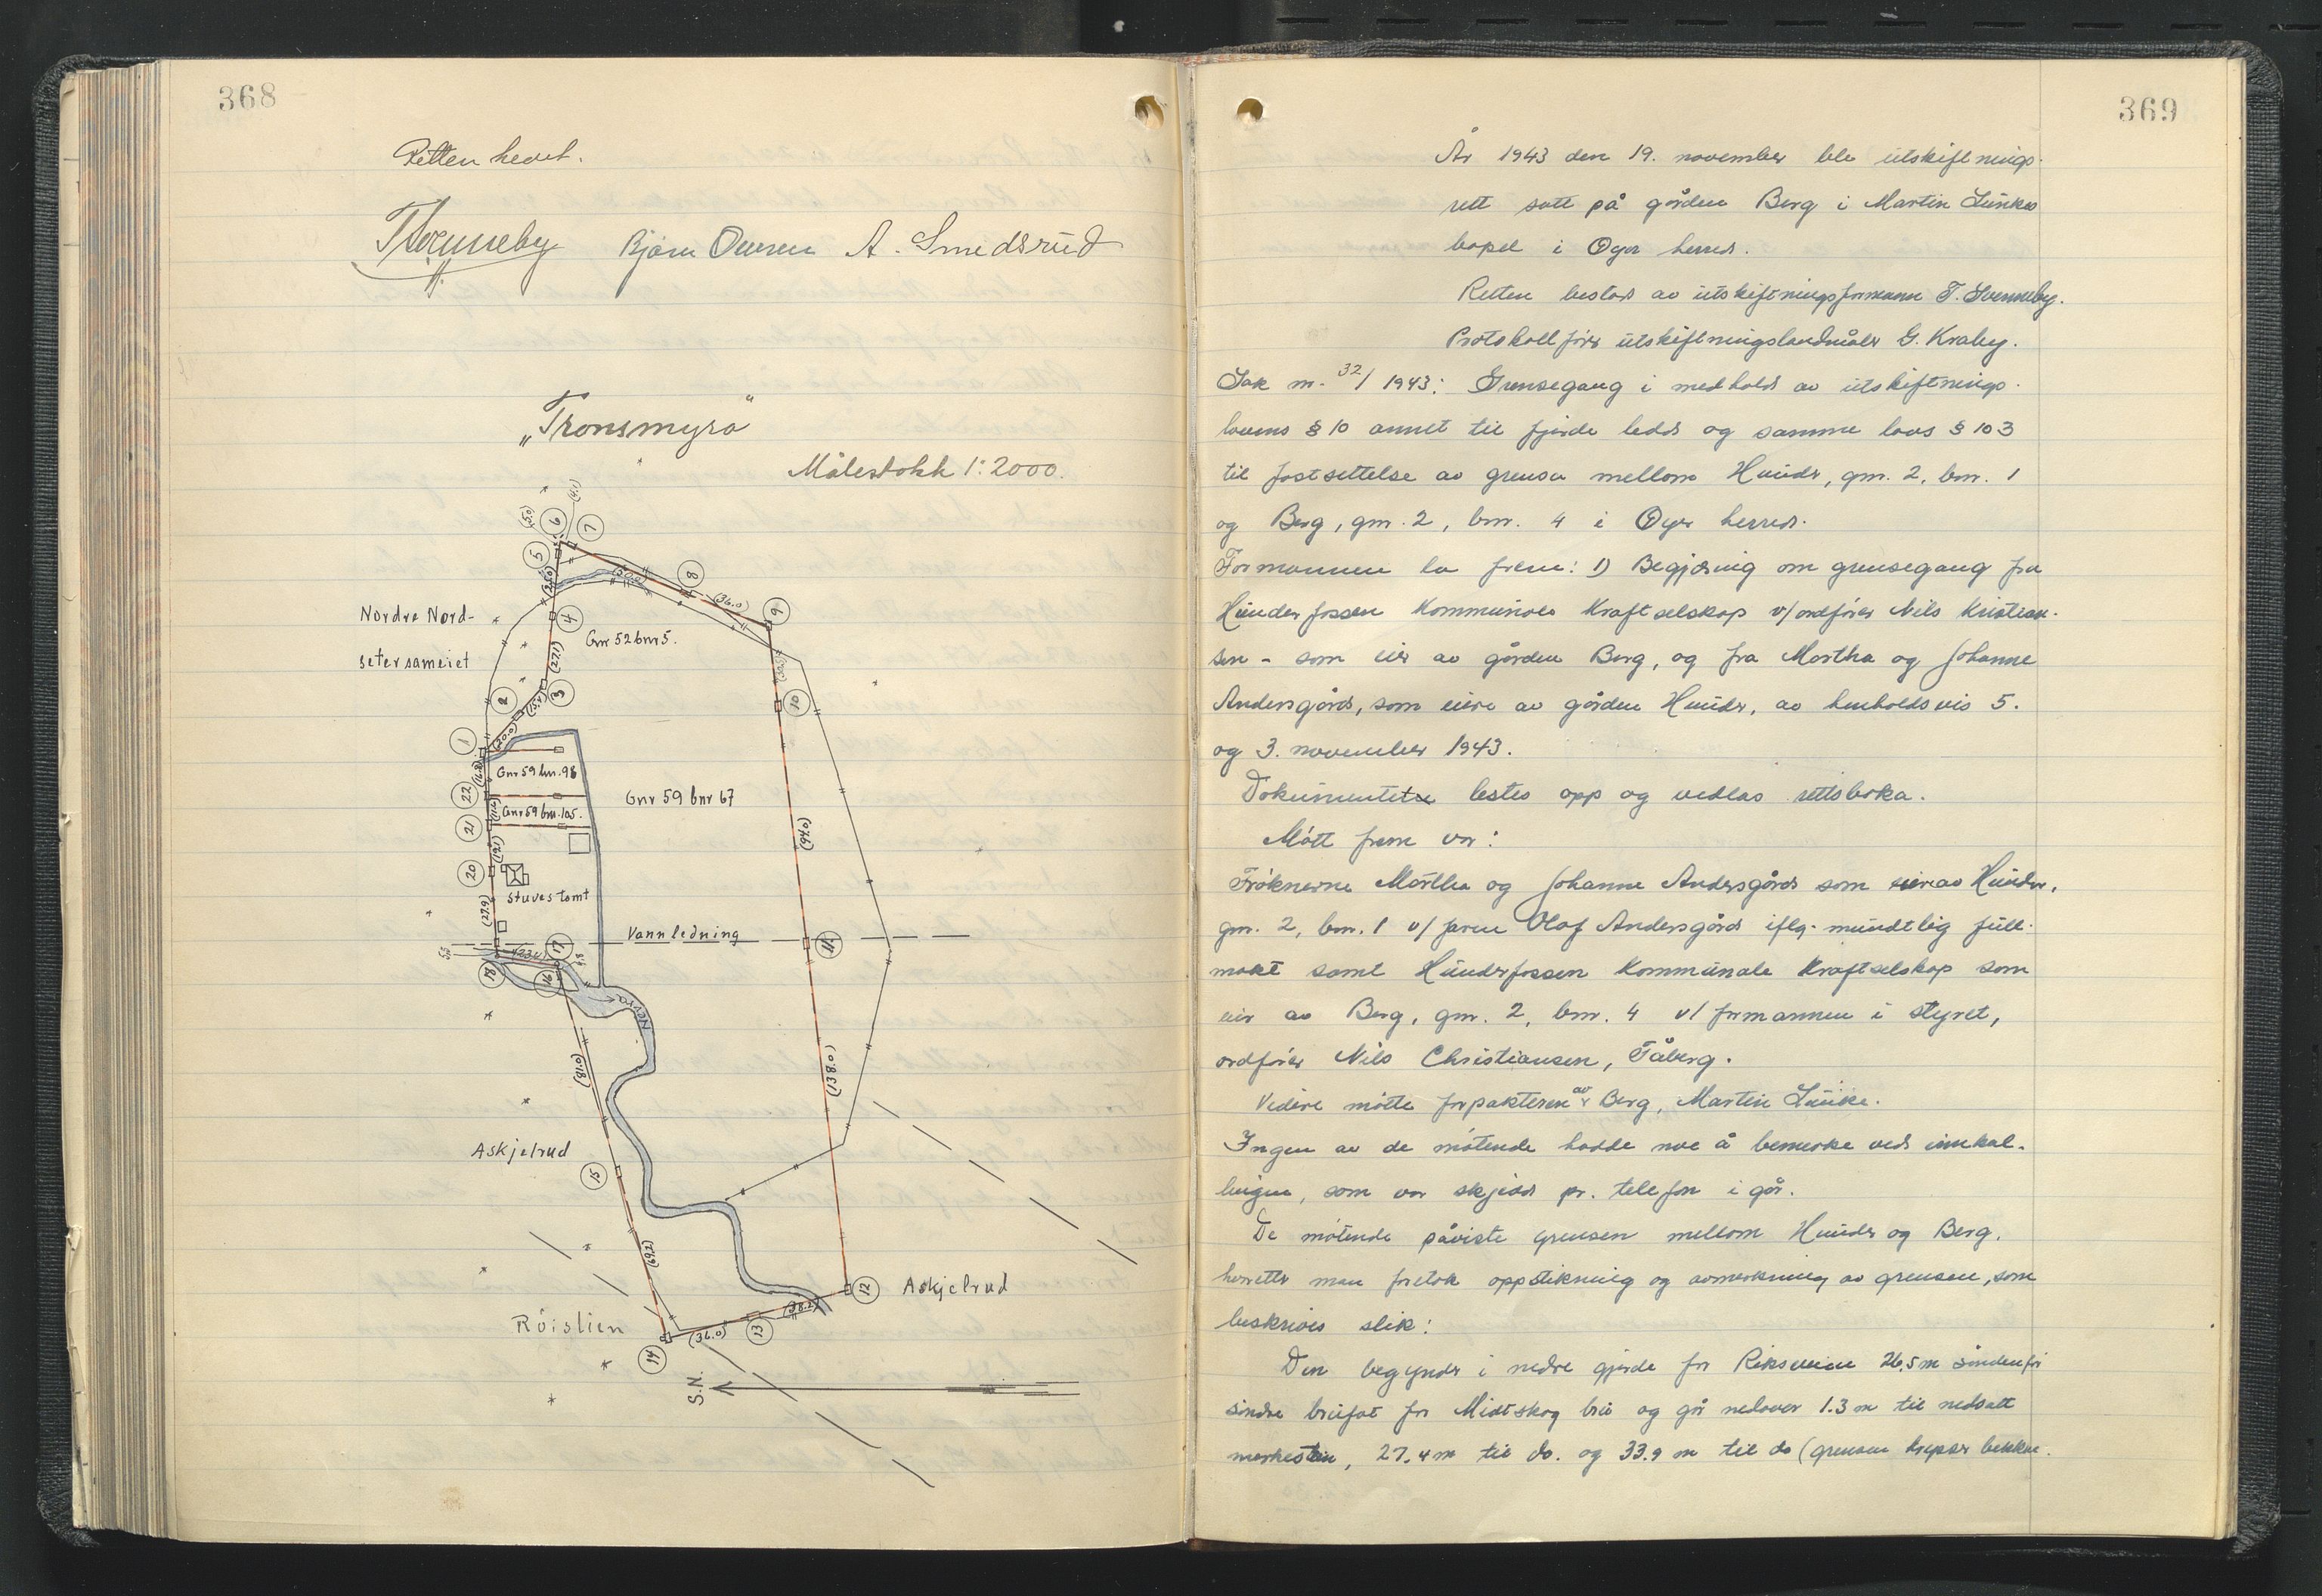 368
Retten hevet.
TSvenneby Bjørn Øveren A. Smedsrud
"Tronsmyra"
Målestokk 1:2000.
(5.0)
(4.1)
6
7
5
(25.0)
(50.0)
8
(36.0)
9
Nordre Nord-
setersameiet
4
Gnr 52 bnr 5.
(27.1)
3
2
(15.4)
10
1
(20.0)
Gnr 59 bnr. 98
22
Gnr 59 bnr 67
Gnr 59 bnr. 105.
21
(94.0)
20
Stuves tomt
(27.9)
Vannledning
17
11
18
16
Nevra
(81.0)
(138.0)
Askjelrud
15
(69.2)
12
Askjelrud
(38.2)
Röislien
(36.0)
13
14
S.N.
369
År 1943 den 19. november ble utskiftnings-
rett satt på gården Berg i Martin Lunkes
bopel i Øyer herred.
Retten bestod av utskiftningsformann T. Svenneby.
Protokollfører utskiftningslandmåler G. Kraby.
Sak nr. 32/1943: Grensegang i medhold av utskiftnings-
lovens § 10 annet til fjerde ledd og samme lovs § 103
til fastsettelse av grensa mellom Hunder, gnr. 2, bnr. 1
og Berg, gnr. 2, bnr. 4 i Øyer herred.
Formannen la frem: 1) Begjæring om grensegang fra
Hunderfossen Kommunale Kraftselskap v/ordfører Nils Kristian-
sen - som eier av gården Berg, og fra Martha og Johanne
Andersgård, som eiere av gården Hunder, av henholdsvis 5.
og 3. november 1943.
Dokumentene lestes opp og vedlas rettsboka.
Møtt frem var:
Frøknerne Martha og Johanne Andersgård som eiere av Hunder,
gnr. 2, bnr. 1 v/ faren Olaf Andersgård iflg. mundtlig full-
makt samt Hunderfossen Kommunale Kraftselskap som
eier av Berg, gnr. 2, bnr. 4 v/ formannen i styret,
ordfører Nils Christiansen, Fåberg.
Videre møtte forpakteren av Berg, Martin Lunke.
Ingen av de møtende hadde noe å bemerke ved innkal-
lingen, som var skjedd pr. telefon i går.
De møtende påviste grensen mellom Hunder og Berg,
hvoretter man foretok oppstikning og avmerkning av grensen, som
beskrives slik:
Den begynder i nedre gjerde for Riksveien 26,5 m søndenfor
søndre brufot for Midtskog bru og går nedover 1.3 m til nedsatt
merkestein, 27.4 m til do. og 33.9 m til do (grensen krysser bekken.